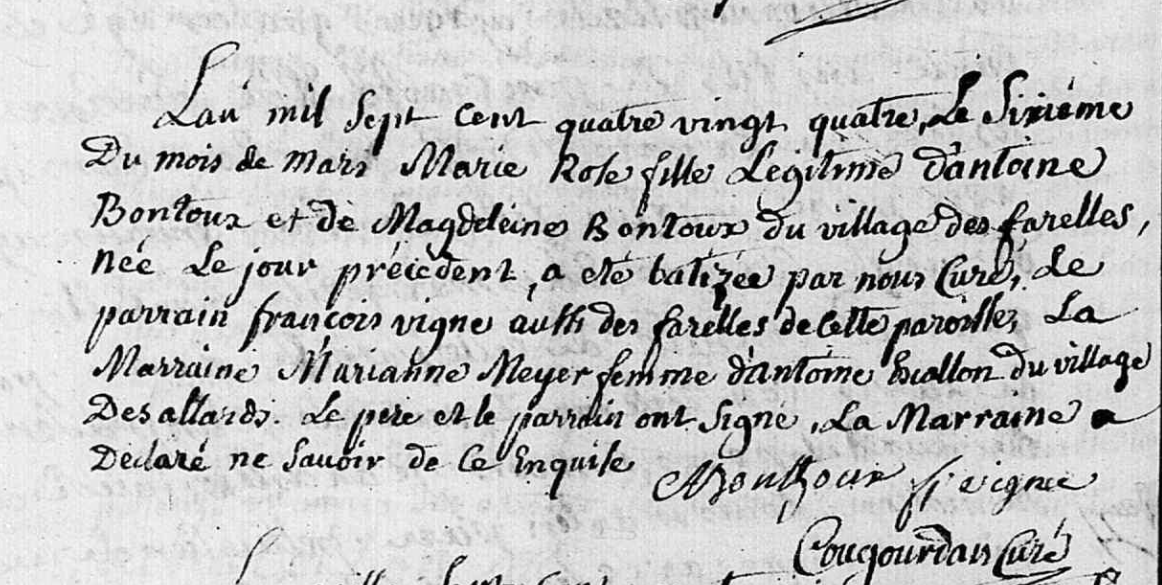 Lan mil Sept Cent quatre vingt quatre, Le Sixiéme
Du mois de Mars Marie Rose fille Legitime d'antoine
Bontoux et de Magdeleine Bontoux du village des farelles,
née Le jour précèdent, a eté batizée par nous Curé, Le
parrain françois vigne aussi des farelles de Cette paroisse, La
Marraine Marianne Meyer femme d'antoine Escallon du village
Des allards. Le pere et le parrain ont Signé, La Marraine a
Declaré ne Savoir de Ce Enquise
ABontoux f vigne
Cougourdan Curé